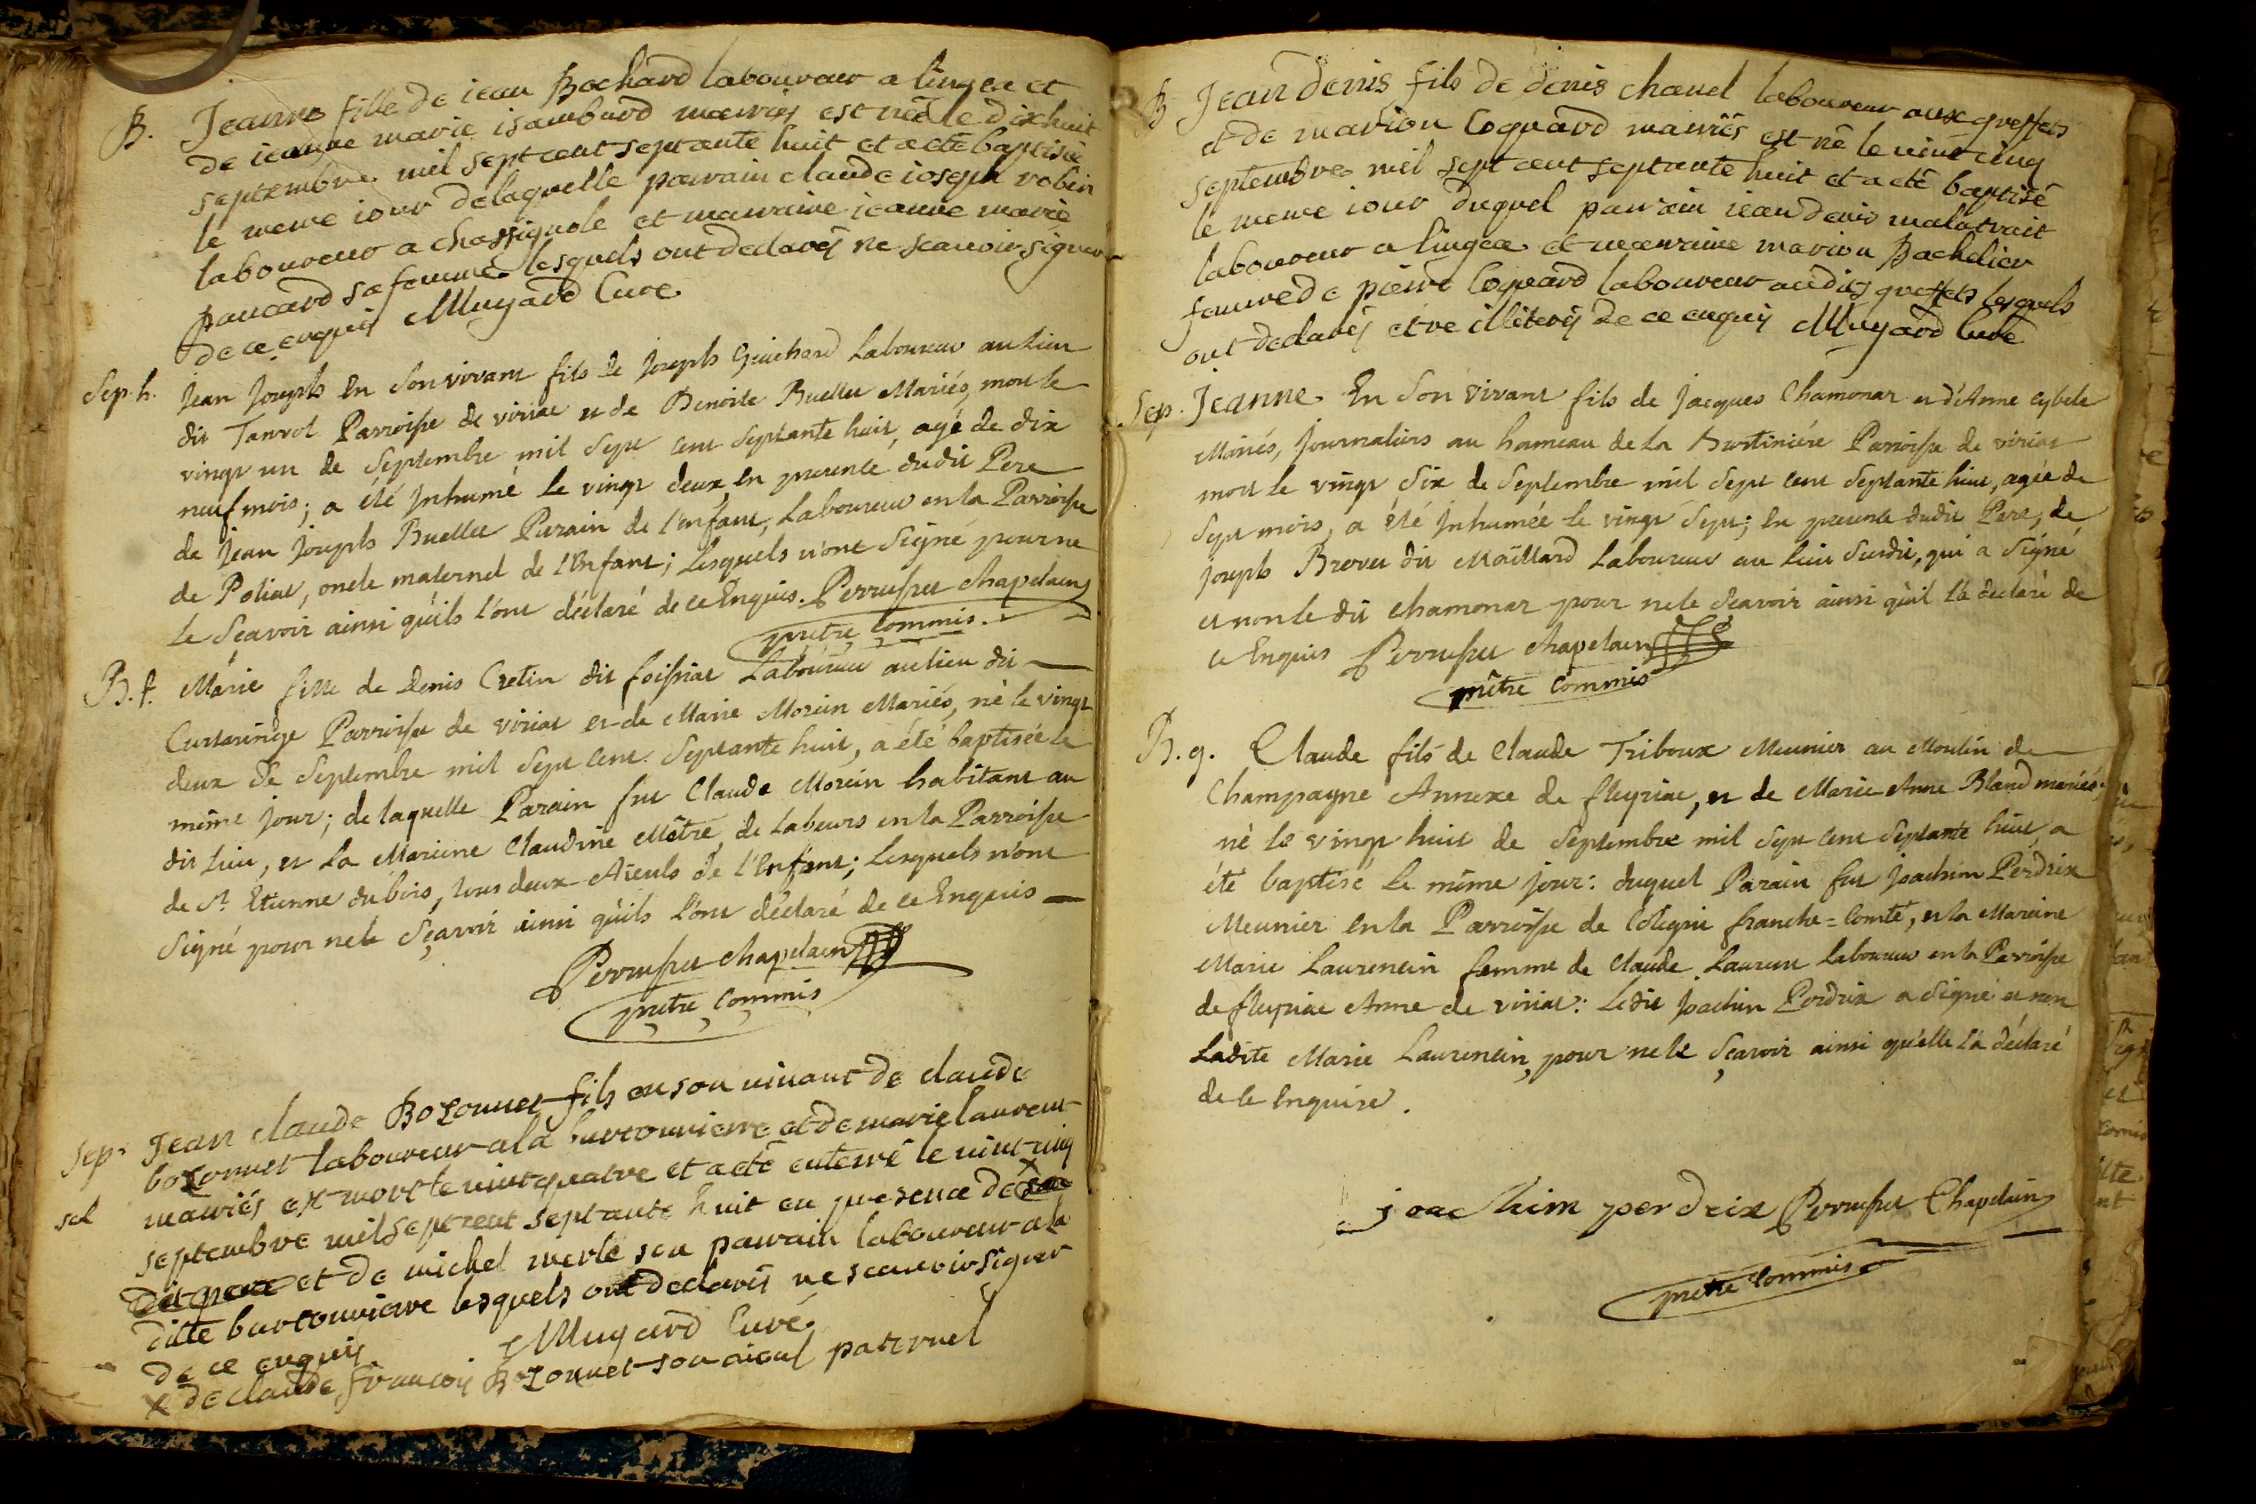 B. Jeanne fille de jean Bochard laboureur a lingea et
de jeanne marie isambard mauriés est née le dixhuit
septembre mil sept cent septante huit et a eté baptisée
le meme iour de laquelle pawrain claude ioseph robin
laboureur a chassignole et mauraine ieanne marie
pauard sa femme lesquels ont declarés ne scauoir signer
de ce enquis Mugard Curé
Sep. h. Jean Joseph En Son vivant fils de Joseph Guichard Laboureur au Lieu
dit Tanvol Parroisse de viriat et de Benoite Buellet Mariés, mort le
vingt un de Septembre mil Sept Cent Septante huit, agé de dix
neuf mois; a été Inhumé Le vingt deux En presence dudit Pere
de Jean Joseph Buellet Parain de l'enfant, Laboureur en la Parroisse
de Poliat, oncle maternel de l'Enfant; Lesquels n'ont Signé pour ne
le Sçavoir ainsi qu'ils l'ont déclaré de ce Enquis. Perruset chapelain
prêtre Commis.
B. f. Marie fille de Denis Cretin dit foissiat Laboureur au lieu dit
Curtaringe Parroisse de viriat et de Marie Morein Mariés, né le vingt
deux de Septembre mil Sept Cent Septante huit, a été baptisée le
même jour; de laquelle Parain fut Claude Morein habitant au
dit Lieu, et La Mareine Claudine Mêtre de Labeurs en la Parroisse
de St. Etienne du bois, tous deux Aïeuls de l'Enfant; Lesquels n'ont
Signé pour ne le Sçavoir ainsi qu'ils l'ont déclaré de ce Enquis
Perruset chapelain
prêtre Commis
Sep. Jean claude Bozonnet fils en son uiuant de claude
bozonnet laboureur a la burtonniere et de marie laurent
mauriés est mort le uint quatre et a eté enterré le uint cinq
sol
septembre mil sept cent septante huit en presence de x son
dit pere et de michel merle son pawrain laboureur a la
ditte burtonniere lesquels ont declarés ne scauoir signer
de ce enquis Mugard Curé
x de claude françois Bozonnet son aieul paternel
B Jean denis fils de denis chanel laboureur aux greffets
et de marion Coquard mauriés est né le uint cinq
septembre mil sept cent septante huit et a eté baptisé
le meme iour duquel pawrain iean denis malatrait
laboureur a lingea et mauraine marion Bachelier
femme de pierre Coquard laboureur audits greffets lesquels
ont declarés etre illiterés de ce enquis Mugard Curé
Sep. Jeanne En Son vivant fils de Jacques Chamonar et d'Anne Cybele
Mariés, Journaliers au hameau de la Burtiniére Parroisse de viriat
mort le vingt Six de Septembre mil Sept Cent Septante huit, agée de
Sept mois, a été Inhumée le vingt Sept; En presence dudit Pere, de
Joseph Brevet dit Maîllard Laboureur au Lieu Surdit, qui a Signé
et non le dit Chamonar pour ne le Sçavoir ainsi qu'il l'a déclaré de
ce Enquis Perruset chapelain
prêtre Commis
B. g. Claude fils de Claude Triboux Meunier au Moulin de
Champagne Annexe de fleyriat, et de Marie Anne Bland mariés;
né le vingt huit de Septembre mil Sept Cent Septante huit, a
été baptisé Le même jour: duquel Parain fut Joachim Perdrix
Meunier En la Parroisse de Coligni franche=Comté, et la Mareine
Marie Laurencin femme de Claude Laurent Laboureur en la Parroisse
de fleyriat Anne de viriat: Ledit Joachim Perdrix a Signé et non
Ladite Marie Laurencin, pour ne le Sçavoir ainsi qu'elle l'a déclaré
de Ce Enquise.
joachim perdrix Perruset Chapelain
prêtre Commis